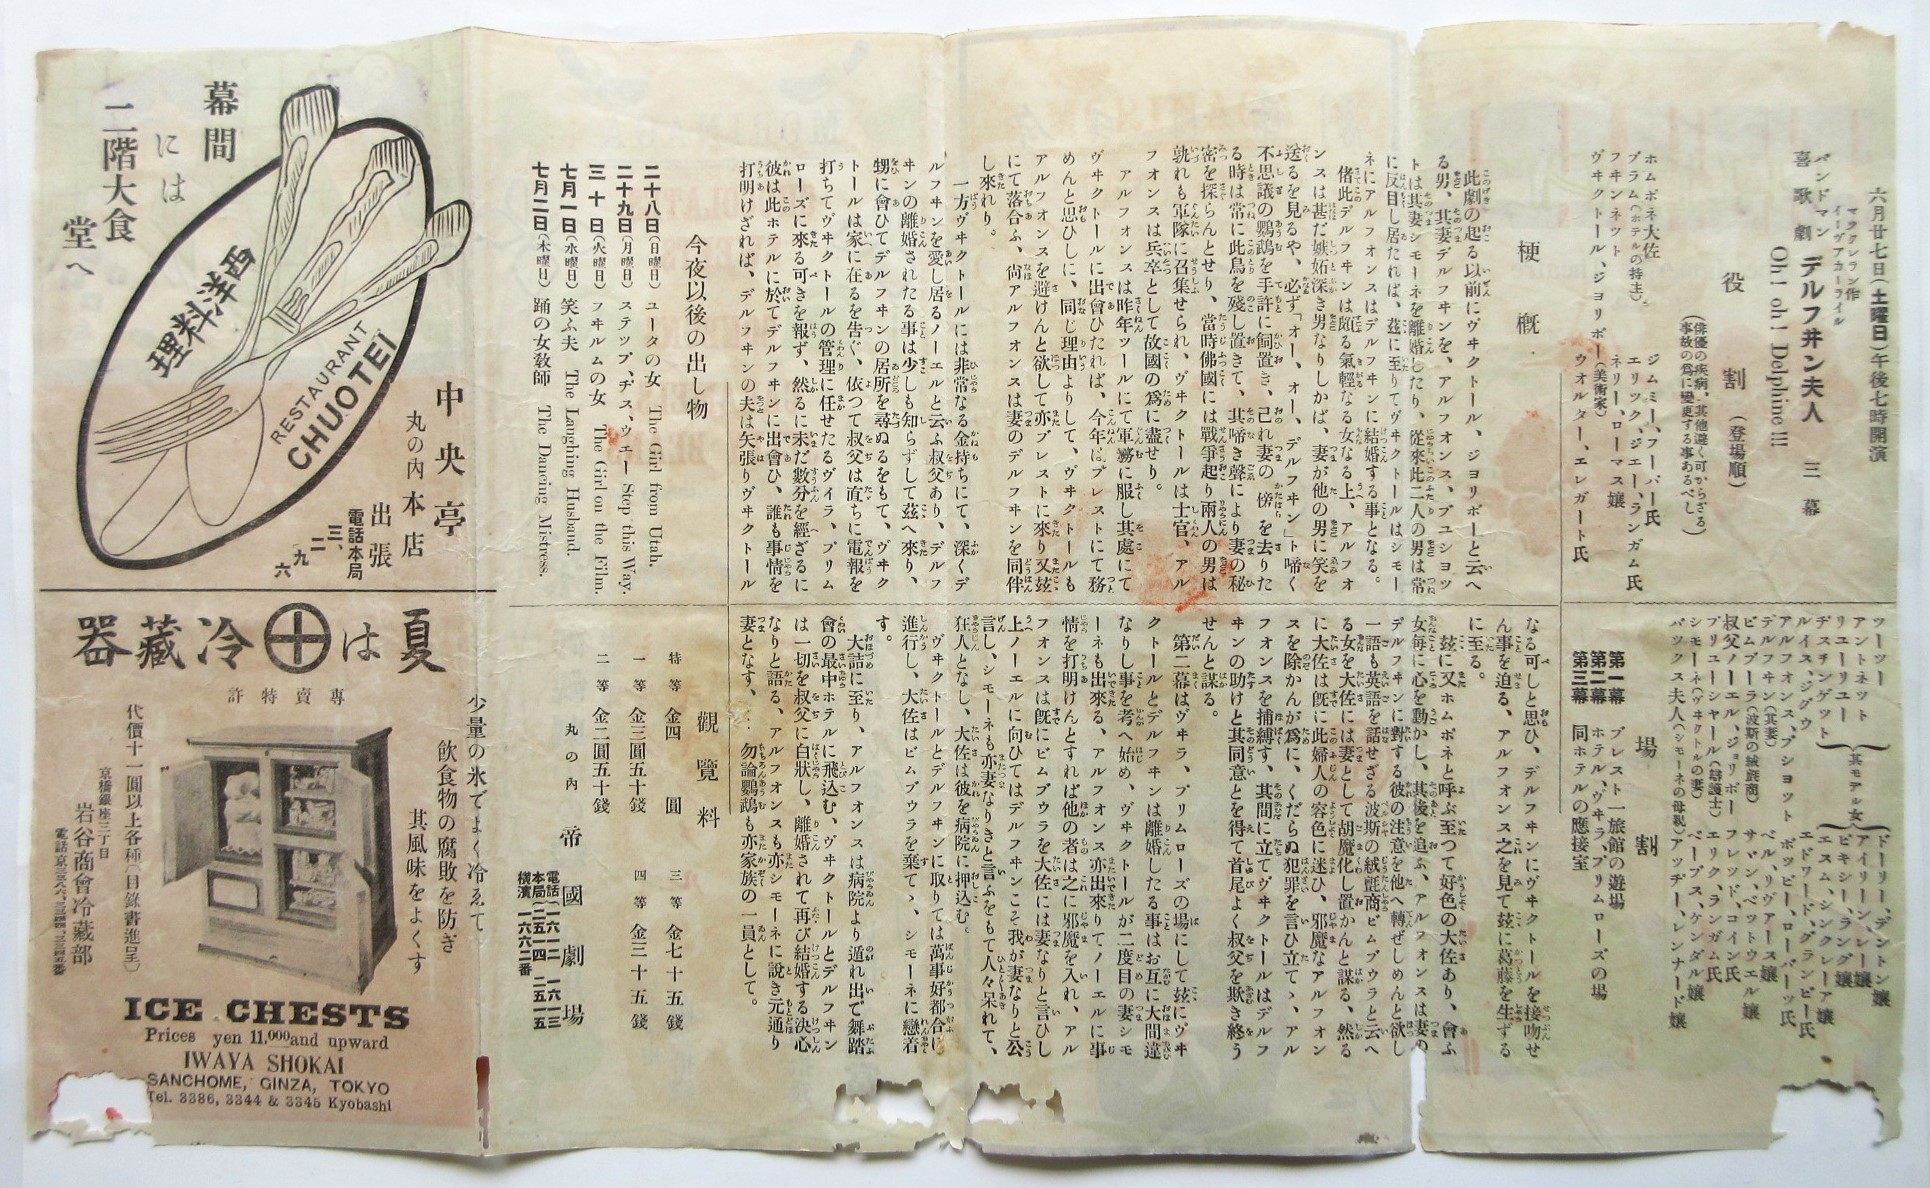 六月廿七日(土曜日)午後七時開演
マクラクラン作
イーヴアカーライル
バンドマン
喜歌劇 デルフ井ン夫人 三幕
Oh! oh! Delphine!!!
役割 (登場順)
(俳優の疾病、其他避く可からざる
事故の爲に變更する事あるべし)
ホムボネ大佐 ジムミー、フーバー氏
ブラム(ホテルの持主) エリック、ジエー、ランガム氏
フ井ンネツト ネリー、ローマス嬢
ヴ井クトール、ジヨリボー(美術家) ウオルター、エレガート氏
ツーツー
アントネット
リユーリユー
ヂスチンゲツト
(其モデル女)
ドーリー、デントン嬢
アイリーン、レー嬢
ピキシー、ラング嬢
エスム、シンクレーア嬢
ルイス、ジグウ エドワード、グランビー氏
アルフオンス、ブシヨツト ボツビー、ロバーツ氏
デルフ井ン(其妻) ベル、リヴアース嬢
ビムブーラ(波斯の絨氈商) サン、ベットウエル嬢
叔父ノーエル、ジヨリボー フレツド、コイン氏
ブリユーシヤール(辯護士) エリク、ランガム氏
シモーネ(ヴ井クトルの妻) ベーブス、ケンダル嬢
バツクス夫人(シモーネの母親) アツチー、レンナード嬢
場割
第一幕 ブレスト一旅館の遊場
第二幕 ホテル、ヴ井ラ、プリムローズの場
第三幕 同ホテルの應接室
梗概
此劇の起る以前にヴ井クトール、ジヨリボーと云へ
る男、其妻デルフ井ンを、アルフオンス、ブユシヨツ
トは其妻シモーネを離婚したり、從來此二人の男は常
に反目し居たれば、茲に至りてヴ井クトールはシモー
ネにアルフオンスはデルフ井ンに結婚する事となる。
偖此デルフ井ンは頗る氣輕なる女なる上、アルフオ
ンスは甚だ嫉妬深き男なりしかば、妻が他の男に笑を
送るを見るや、必ず「オー、オー、デルフ井ン」ト啼く
不思議の鸚鵡を手許に飼置き、己れ妻の傍を去りた
る時は常に此鳥を殘し置きて、其啼き聲により妻の秘
密を探らんとせり、當時佛國には戰爭起り兩人の男は
孰れも軍隊に召集せられ、ヴ井クトールは士官、アル
フオンスは兵卒として故國の爲に盡せり。
アルフオンスは昨年ツールにて軍務に服し其處にて
ヴ井クトールに出會ひたれば、今年はブレストにて務
めんと思ひしに、同じ理由よりして、ヴ井クトールも
アルフオンスを避けんと欲して亦ブレストに來り又茲
にて落合ふ、尚アルフオンスは妻のデルフ井ンを同伴
し來れり。
一方ヴ井クトールには非常なる金持ちにて、深くデ
ルフ井ンを愛し居るノーエルと云ふ叔父あり、デルフ
井ンの離婚されたる事は少しも知らずして茲へ來り、
甥に會ひてデルフ井ンの居所を尋ぬるをもて、ヴ井ク
トールは家に在るを告ぐ、依つて叔父は直ちに電報を
打ちてヴ井クトールの管理に任せたるヴイラ、プリム
ローズに來る可きを報ず、然るに未だ數分を經ざるに
彼は此ホテルに於てデルフ井ンに出會ひ、誰も事情を
打明けざれば、デルフ井ンの夫は矢張りヴ井クトール
なる可しと思ひ、デルフ井ンにヴ井クトールを接吻せ
ん事を迫る、アルフオンス之を見て茲に葛藤を生ずる
に至る。
茲に又ホムボネと呼ぶ至つて好色の大佐あり、會ふ
女毎に心を動かし、其後を追ふ、アルフオンスは妻の
デルフ井ンに對する彼の注意を他へ轉ぜしめんと欲し
一語も英語を話せざる波斯の絨氈商ビムブウラと云へ
る女を大佐には妻として胡魔化し置かんと謀る、然る
に大佐は旣に此婦人の容色に迷ひ、邪魔なアルフオン
スを除かんが爲に、くだらぬ犯罪を言ひ立てゝ、アル
フオンスを捕縛す、其間に立てヴ井クトールはデルフ
井ンの助けと其同意とを得て首尾よく叔父を欺き終う
せんと謀る。
第二幕はヴ井ラ、プリムローズの場にして茲にヴ井
クトールとデルフ井ンは離婚したる事はお互に大間違
なりし事を考へ始め、ヴ井クトールが二度目の妻シモ
ーネも出來る、アルフオンス亦出來りてノーエルに事
情を打明けんとすれば他の者は之に邪魔を入れ、アル
フオンスは旣にビムブウラを大佐には妻なりと言ひし
上ノーエルに向ひてはデルフ井ンこそ我が妻なりと公
言し、シモーネも亦妻なりきと言ふをもて人々呆れて、
狂人となし、大佐は彼を病院に押込む。
ヴ井クトールとデルフ井ンに取りては萬事好都合に
進行し、大佐はビムブウラを棄てゝ、シモーネに戀着
す。
大詰に至り、アルフオンスは病院より遁れ出で舞踏
會の最中ホテルに飛込む、ヴ井クトールとデルフ井ン
は一切を叔父に白狀し、離婚されて再び結婚する決心
なりと語る、アルフオンスも亦シモーネに說き元通り
妻となす、…勿論鸚鵡も亦家族の一員として。
今夜以後の出し物
二十八日(日曜日) ユータの女 The Girl from Utah.
二十九日(月曜日) ステツプ、ヂス、ウエー Step this Way.
三十日(火曜日) フ井ルムの女 The Girl on the Film.
七月一日(水曜日) 笑ふ夫 The Laughing Husband.
七月二日(木曜日) 踊の女敎師 The Dancing Mistress.
觀覽料
特等 金四圓 三等 金七十五錢
一等 金三圓五十錢 四等 金三十五錢
二等 金二圓五十錢
丸の內 帝國劇場
電話 一六一二 一六一三
本局(二五一四 二五一五
橫濱 一六六二番
幕間
には
二階大食
堂へ
西洋料理
RESTAURANT
CHUOTEI
中央亭
丸の內本店
出張
電話本局
三、二九六
夏は冷藏器
專賣特許
少量の氷でよく冷ゑて
飲食物の腐敗を防ぎ
其風味をよくす
代價十一圓以上各種(目錄書進呈)
京橋銀座三丁目
岩谷商會冷藏部
電話京三三八六、三三四四、三三四五番
ICE CHESTS
Prices yen 11,000 and upward
IWAYA SHOKAI
SANCHOME, GINZA, TOKYO
Tel. 3386, 3344 & 3345 Kyobashi